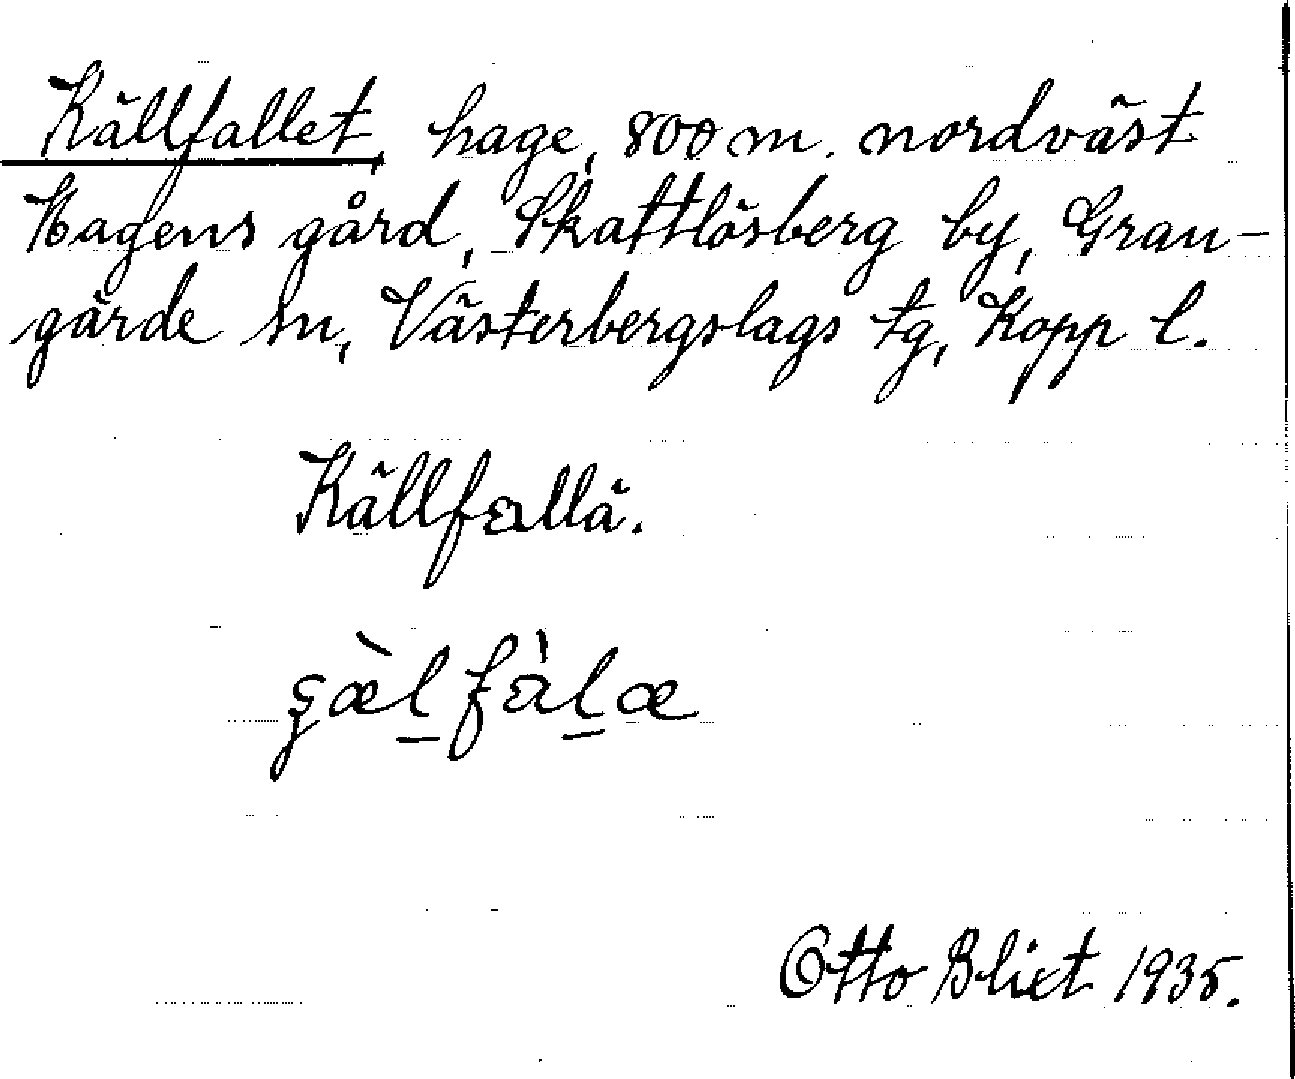 Källfallet, hage, 800 m. nordväst
Hagens gård, Skattlösberg by, Gran-
gärde sn, Västerbergslags tg, Kopp l.
Källfallä.
çæ̀l̠fàl̠æ
Otto Blixt 1935.